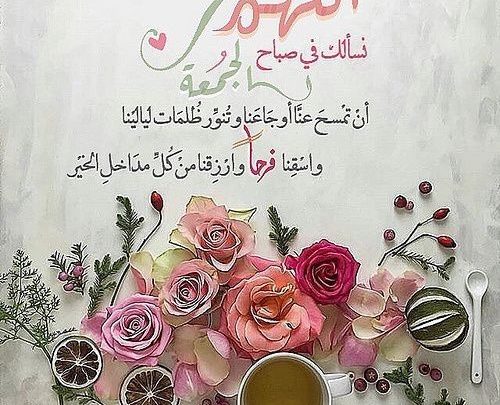 اللهم
نسألك في صباح
الجمعة
أنْ تمْسحَ عنَّا أوجَاعَنا و تُنوِّر ظُلمَات ليَاليْنا
واسْقِنا فرحاً وارْزِقنا منْ كُلِّ مدَاخلِ الخيْر